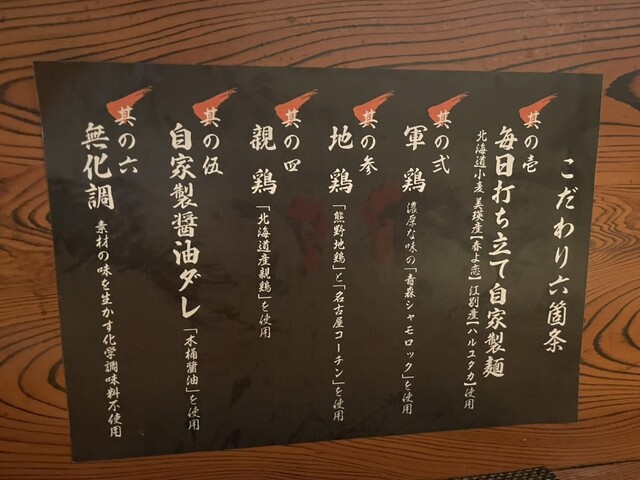 こだわり六箇条
其の壱
毎日打ち立て自家製麺
北海道小麦 美瑛産【春よ恋】 江別産【ハルユタカ】使用
其の弐
軍鶏 濃厚な味の「青森シャモロック」を使用
其の参
地鶏 「熊野地鶏」と「名古屋コーチン」を使用
其の四
親鶏 「北海道産親鶏」を使用
其の伍
自家製醤油ダレ 「木桶醤油」を使用
其の六
無化調 素材の味を生かす化学調味料不使用